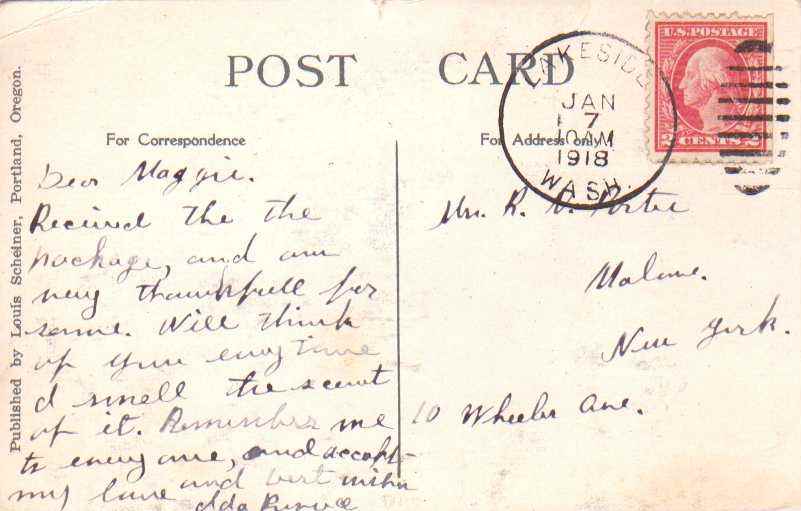 POST CARD
For Correspondence
For Address only
Published by Louis Scheiner, Portland, Oregon.
LAKESIDE
JAN
7
10 AM
1918
WASH.
U.S. POSTAGE
2 CENTS 2
Dear Maggie.
Recieved the the
package, and am
very thankfull for
same. Will think
of you every time
I smell the scent
of it. Remember me
to every one, and accept
my love and best wishes
Ada
Mrs. R. Porter
Malone.
New York.
10 Wheeler Ave.